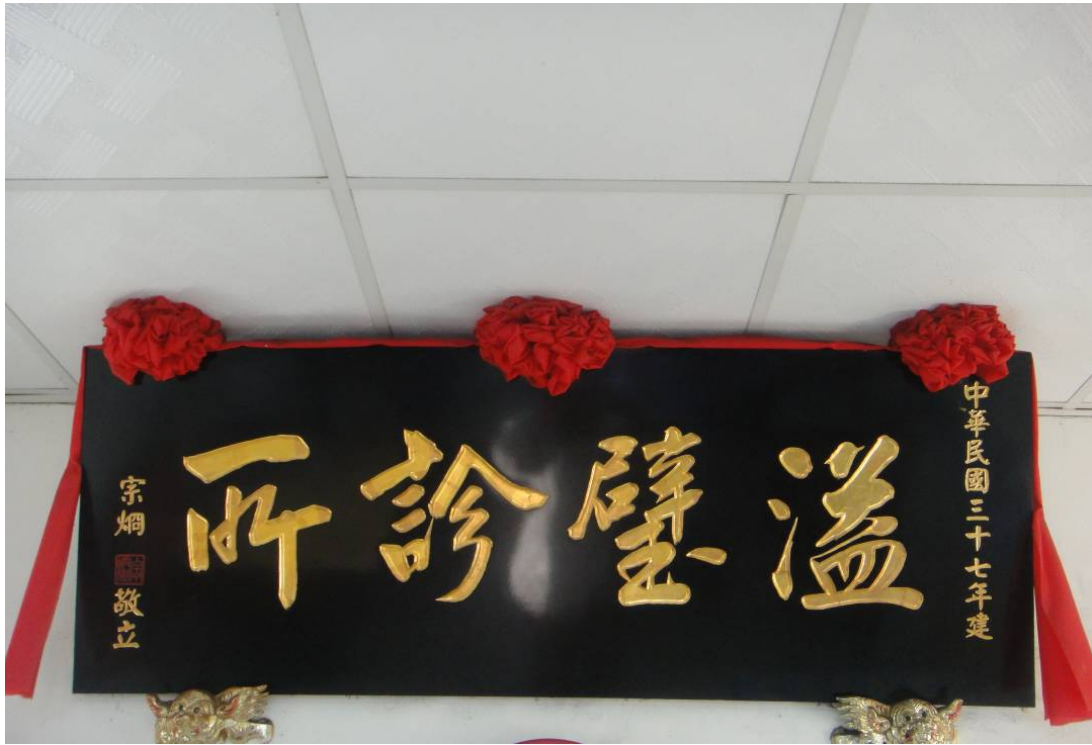 中華民國三十七年建
溢璧診所
宗烱
敬立